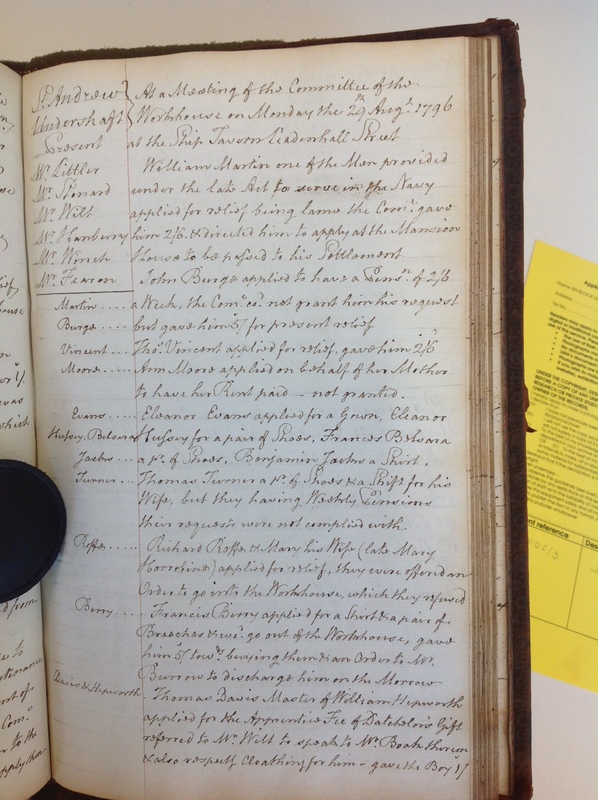 St. Andrew
Undershaft
Present
Mr. Littler
Mr. Wilt
Mr. Hanberry
Mr. Winch
Mr. Fearon
At a Meeting of the Committee of the
Workhouse on Monday the 29th Augt. 1796
at the Ship Tavern Leadenhall Street
William Martin one of the Men provided
under the late Act to serve in the Navy
applied for relief being lame the Come. gave
him 2/6. & directed him to apply at the Mansion
House to be passed to his Settlement
Martin
John Burge applied to have a Pensn. of 2/6
a Week, the Come. cd. not grant him his request
Burge
but gave him 5/ for present relief
Vincent
Thos. Vincent applied for relief, gave him 2/6
Moore
Ann Moore applied on behalf of her Mother
to have her Rent paid – not granted.
Evans
Eleanor Evans applied for a Gown, Eleanor
Hussey, Belsara
Hussey for a pair of Shoes, Frances Belsara
Jacks
a pr. of Shoes, Benjamin Jacks a Shirt,
Turner
Thomas Turner a pr. of Shoes & a Shift for his
Wife, but they having Weekly Pensions
their requests were not complied with
Roffe
Richard Roffe & Mary his Wife (late Mary
) applied for relief, they were offered an
Order to go into the Workhouse, which they refused
Berry
Francis Berry applied for a Shirt & a pair of
Breeches & wd. go out of the Workhouse, gave
him 5/ towds. buying them & an Order to Mr.
Burrow to discharge him on the Morrow
Davis & Hepworth
Thomas Davis Master of William Hepworth
applied for the Apprentice Fee of Datchelor's Gift
referred to Mr. Wilt to speak to Mr. Boak thereon
& also respectg. cloathing for him – gave the Boy 1/